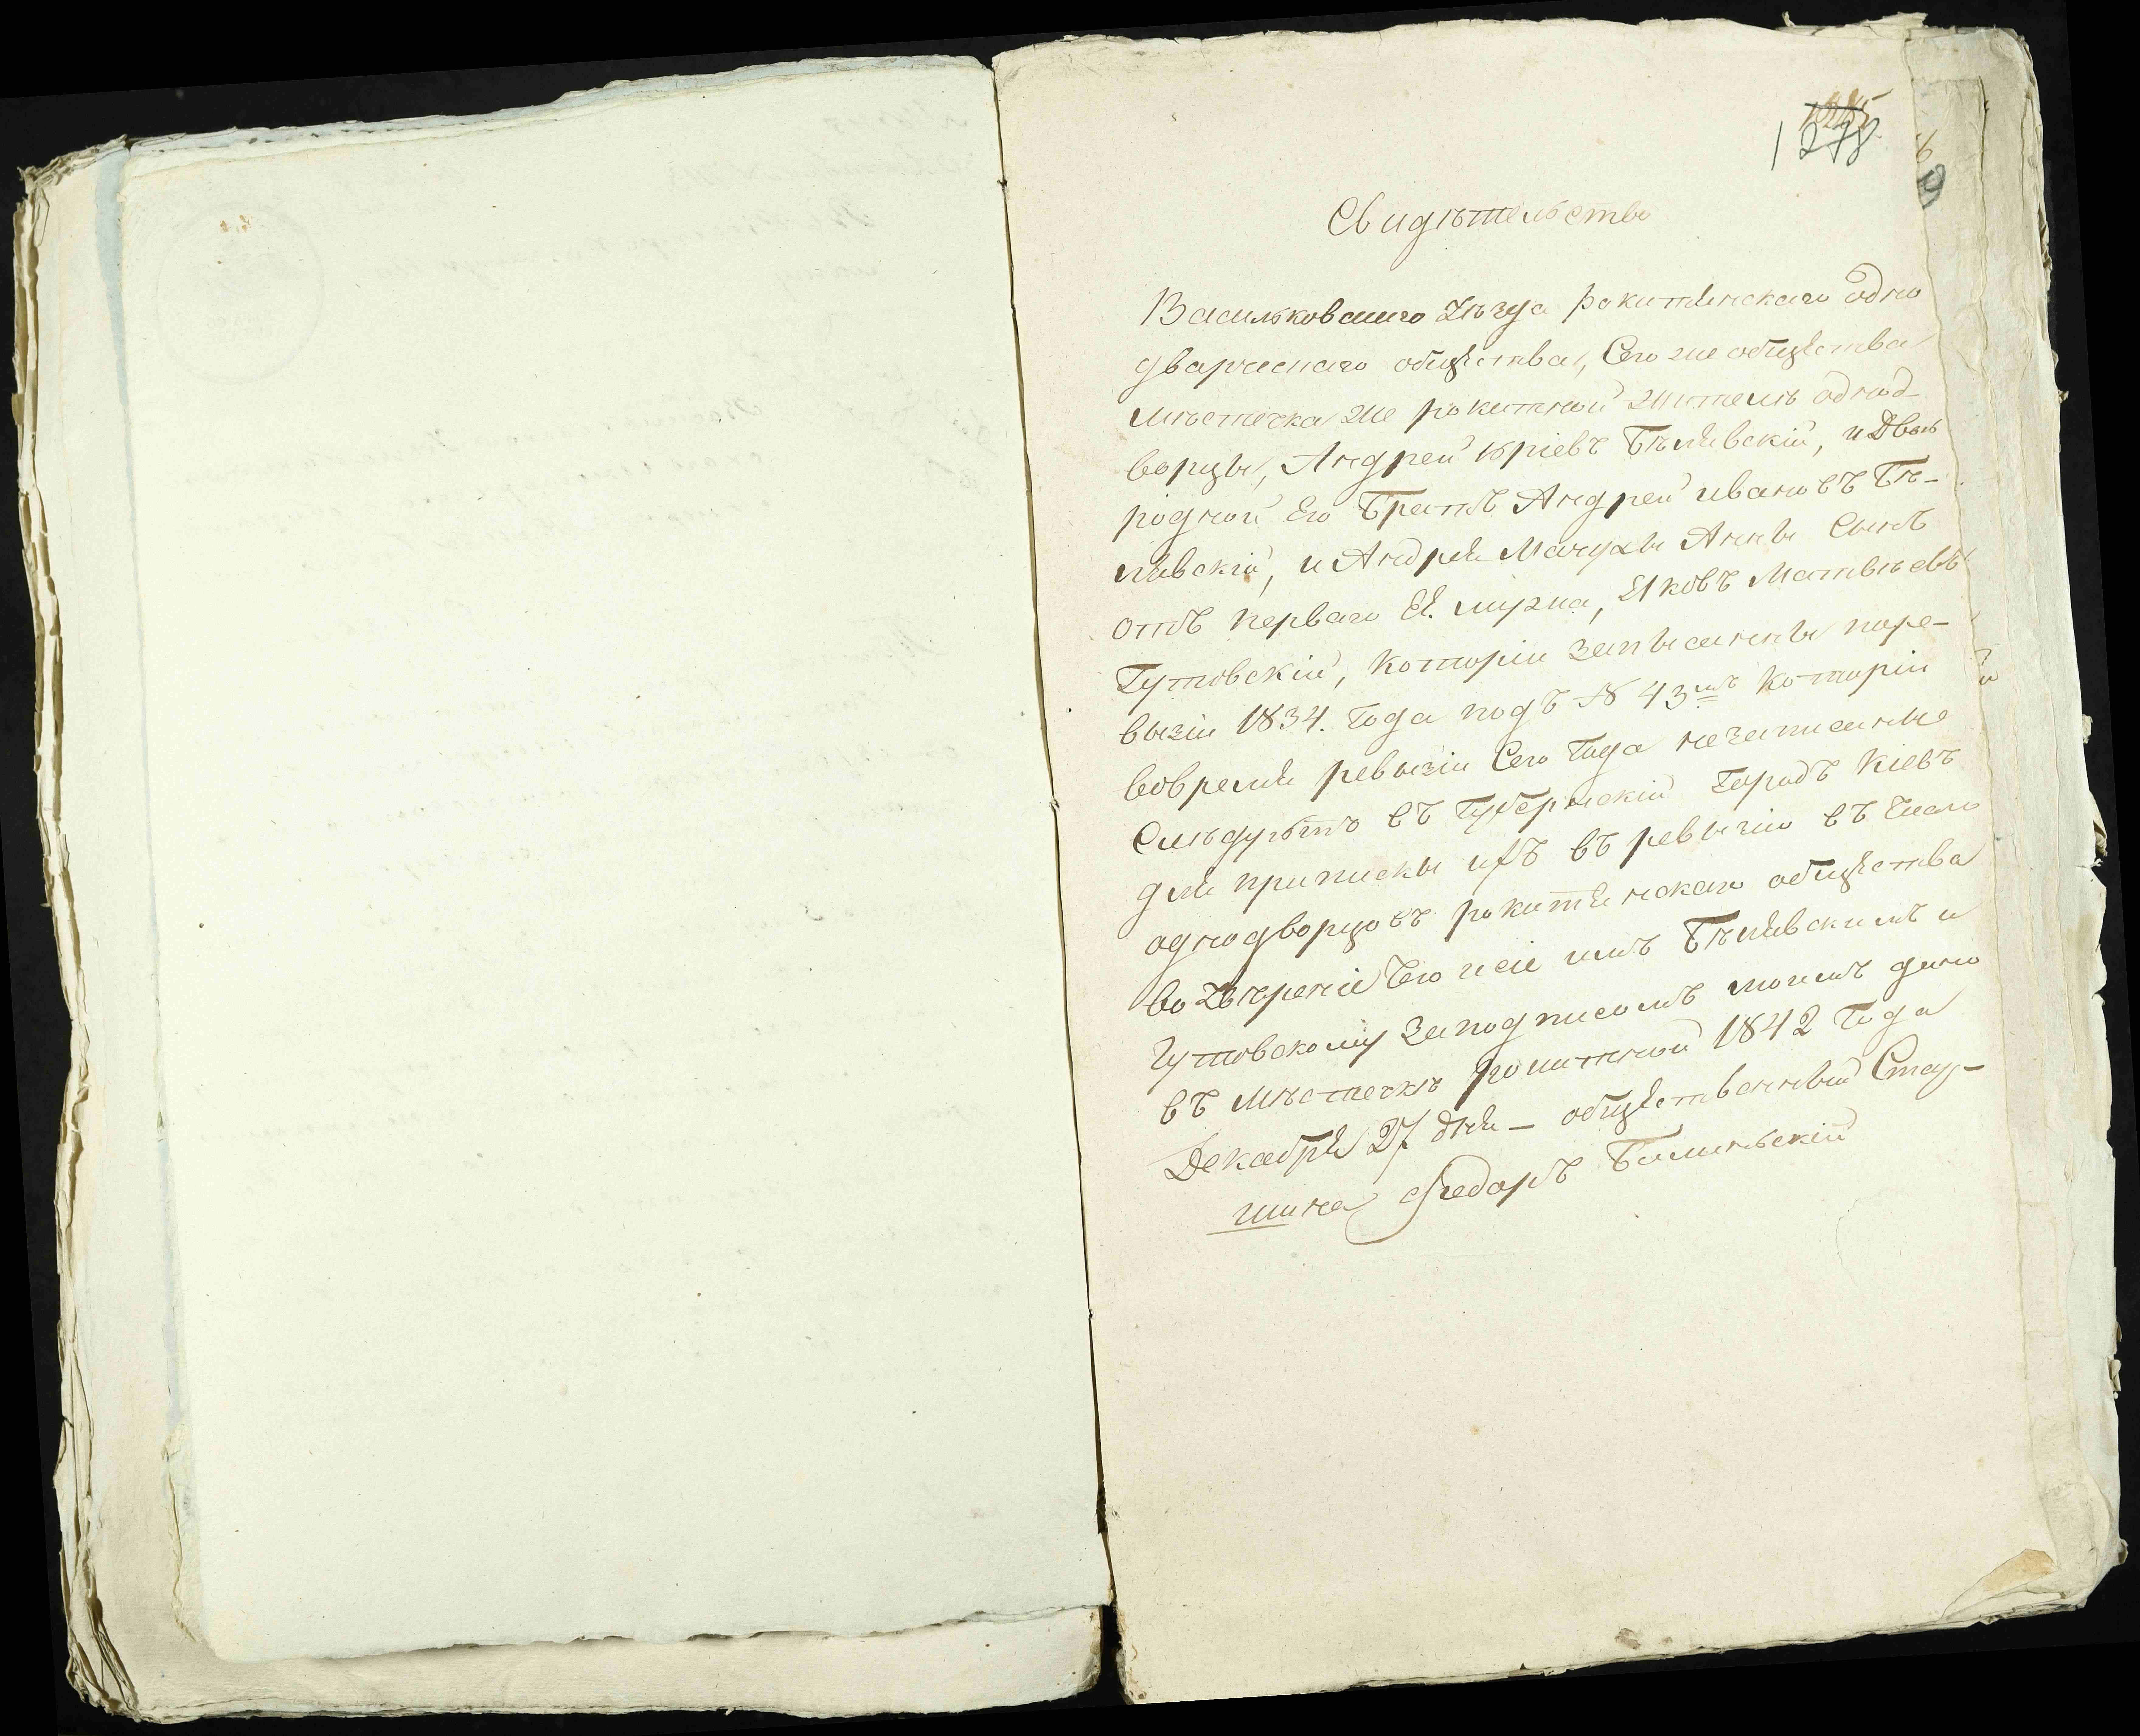 1278
Свидѣтельство
Васильковскаго Уѣзда рокитянскаго одно
дворческаго общества, Сего же общества
мѣстечка же рокитной житель однод-
ворцы, Андрей Юріевъ Бѣлявскій, и Двою
родной Его Братъ Андрей ивановъ Бѣ-
лявскій, и Андрея Мачухы Анны Сынъ
отъ перваго Ея мужа, Яковъ Матвѣевъ
Гутовскій, Которіи запысанны поре-
вызіи 1834. Года подъ № 43мъ Которіи
вовремя ревызіи Сего Года незаписанные
Слѣдуютъ въ Губернскій Городъ Кіевъ
для приписки ихъ въ ревызію въ Число
однодворцовъ рокитянскаго общества
во Увѣреніе Чего и сіе имъ Бѣлявскимъ и
Гутовскому Заподписомъ моимъ дано
въ Мѣстечкѣ рокитной 1842 Года
Декабря 27 дня – общественный Стар-
шина Федоръ